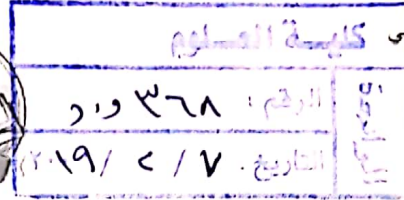 كلية العلوم
الرقم : ٣٦٨ و.د
التاريخ : ٧ / ٢ / ٢٠١٩